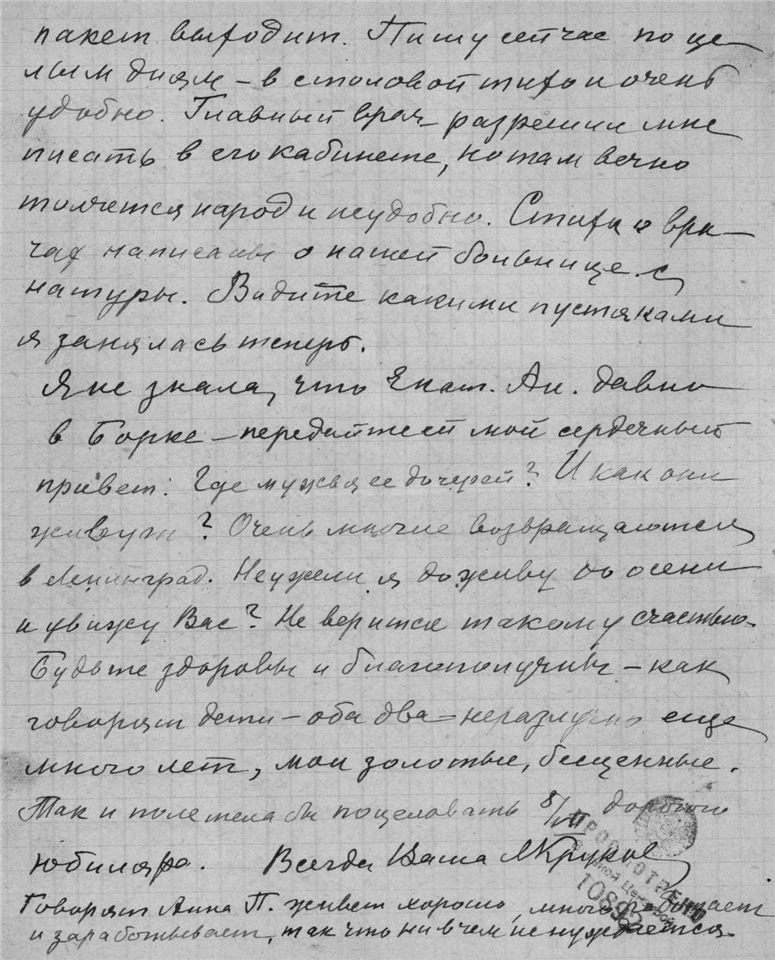 пакет выходит. Пишу сейчас по це-
лым дням – в столовой тихо и очень
удобно. Главный врач разрешил мне
писать в его кабинете, но там вечно
толчется народ и неудобно. Стихи о вра-
чах написаны о нашей больнице с
натуры. Видите какими пустяками
я занялась теперь.
Я не знала, что Екат. Ан. давно
в Борке – передайте ей мой сердечный
привет. Где мужья ее дочерей? И как они
живут? Очень многие возвращаются
в Ленинград. Неужели я доживу до осени
и увижу Вас? Не верится такому счастью.
Будьте здоровы и благополучны – как
говорят дети – оба два = неразлучно еще
много лет, мои золотые, бесценные.
Так и полетела бы поцеловать 8/VII дорогого
юбиляра. Всегда Ваша
Говорят Анна П. живет хорошо, много
и зарабатывает, так что ни в чем не нуждается.
ПРОСМОТРЕНО
10895